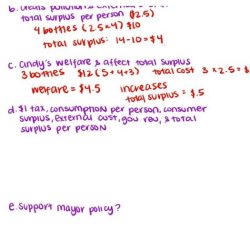 b.
total surplus per person ($2.5)
4 bottles (2.5×4) $10
total surplus: 14-10 = $4
c. Andy's welfare & affect total surplus
3 bottles $12 (5+4+3) total cost 3 × 2.5 = $
welfare = $4.5 increases
total surplus = $.5
d. $1 tax, consumption per person, consumer
surplus, external cost, gov rev, & total
surplus per person
e. support mayor policy?